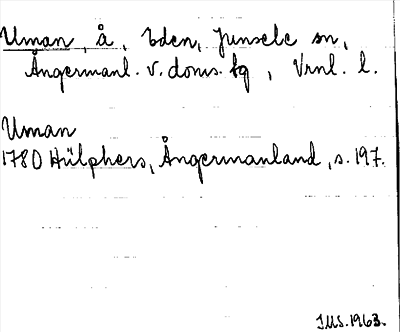 Uman, å, Eden, Junsele sn,
Ångermanl. v. doms. fg, Vrnl. l.
Uman
1780 Hülphers, Ångermanland, s. 197.
IMS. 1963.